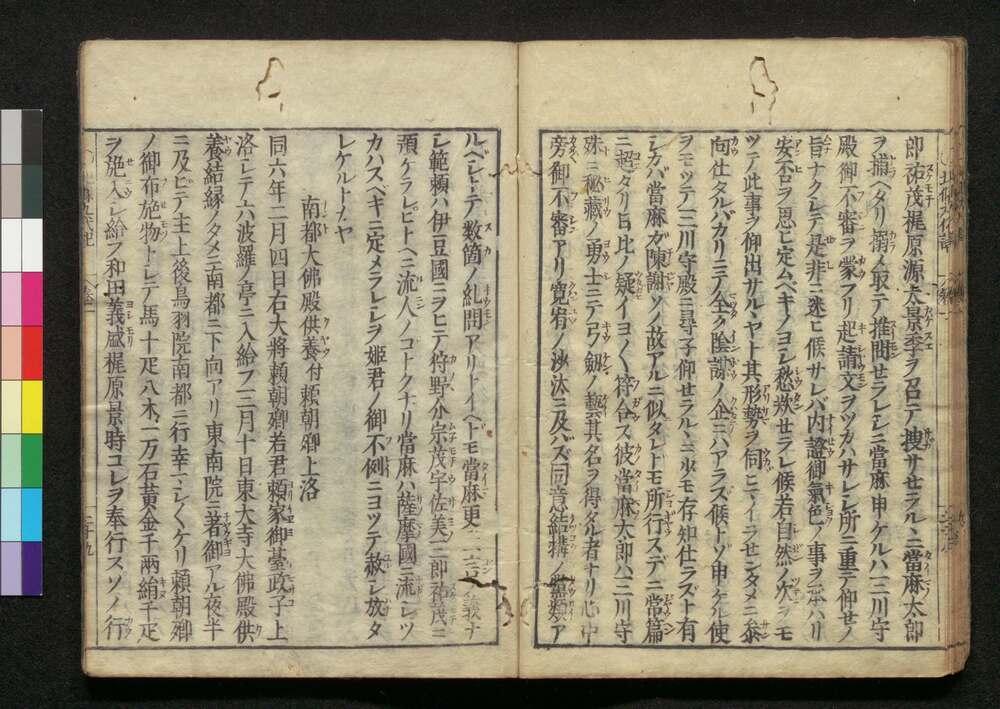 郎祐茂梶原源太景季ヲ召テ搜サセラルヽニ當麻太郎
ヲ捕ヘタリ溺メ取テ推問セラレシニ當麻申ケルハ三川守
殿御不審ヲ蒙フリ起請文ヲツカハサレシ所ニ重テ仰セノ
旨ナクシテ是非ニ迷ヒ候サレバ内證御氣色ノ事ヲ承ハリ
安否ヲ思ヒ定ムベキノヨシ愁歎セラレ候若自然ノ次ヲモ
ツテ此事ヲ仰出サルヽヤト其形勢ヲ伺ヒマイラセンタメニ參
向仕タルバカリニテ全ク陰謀ノ企ニハアラズ候トゾ申ケル使
ヲモツテ三川守殿ニ尋子仰セラルヽニ少モ存知仕ラズト有
シカバ當麻ガ陳謝ソノ故アルニ似タレドモ所行スデニ常篇
ニ超タリ日比ノ疑イヨヽク符合ス彼當麻太郎ハ三川守
殊ニ秘藏ノ勇士ニテ弓劔ノ藝其名ヲ得タル者ナリ心中
旁御不審アリ寛宥ノ沙汰ニ及バズ同意結搆ノ類ア
ルベシトテ数箇ノ糺問アリトイヘトモ當麻更ニ一言ノ義ナ
シ範頼ハ伊豆國ニヲヒテ狩野介宗茂宇佐美三郎祐茂ニ
預ケラレヒトヘニ流人ノコトクナリ當麻ハ薩摩國ニ流シツ
カハスベキニ定メラレシヲ姫君ノ御不例ニヨツテ赦シ放タ
レケルトカヤ
南都大佛殿供養付頼朝卿上洛
同六年二月四日右大將頼朝卿若君頼家御臺政子上
洛シテ六波羅ノ亭ニ入給フ三月十日東大寺大佛殿供
養結縁ノタメニ南都ニ下向アリ東南院ニ著御アル夜半
ニ及ビテ主上後鳥羽院南都ニ行幸マシヽケリ頼朝卿
ノ御布施物トシテ馬十疋八木一万石黄金千兩絹千疋
ヲ施入シ給フ和田義盛梶原景時コレヲ奉行スソノ行